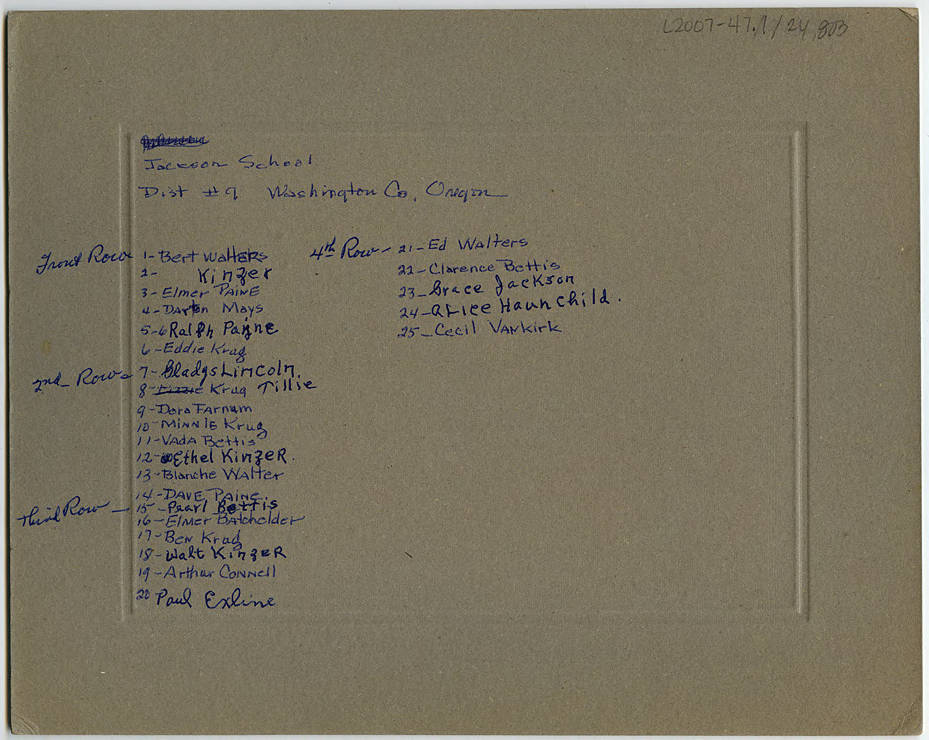 L2007-47.1/24,803
Jackson School
Dist #9 Washington Co, Oregon
Front Row 1-Bert Walters
2- Kinzer
3-Elmer PAINE
4-Darton Mays
5-6 Ralph Payne
6-Eddie Krug
2nd Row 7-Gladys Lincoln.
8- Krug Tillie
9-Dora Farnum
10-MINNIE Krug
11-VADA Bettis
12-Ethel KinzeR.
13-Blanche Walter
14-DAVE PAINE.
third Row - 15-Pearl Bettis
16-Elmer Batchelder
17-BEN Krug
18-Walt KinzeR
19-Arthur CONNEll
20 Paul Exline
4th Row - 21-Ed Walters
22-Clarence Bettis
23-Grace Jackson
24-aLice Haunchild.
25-Cecil VANKirk